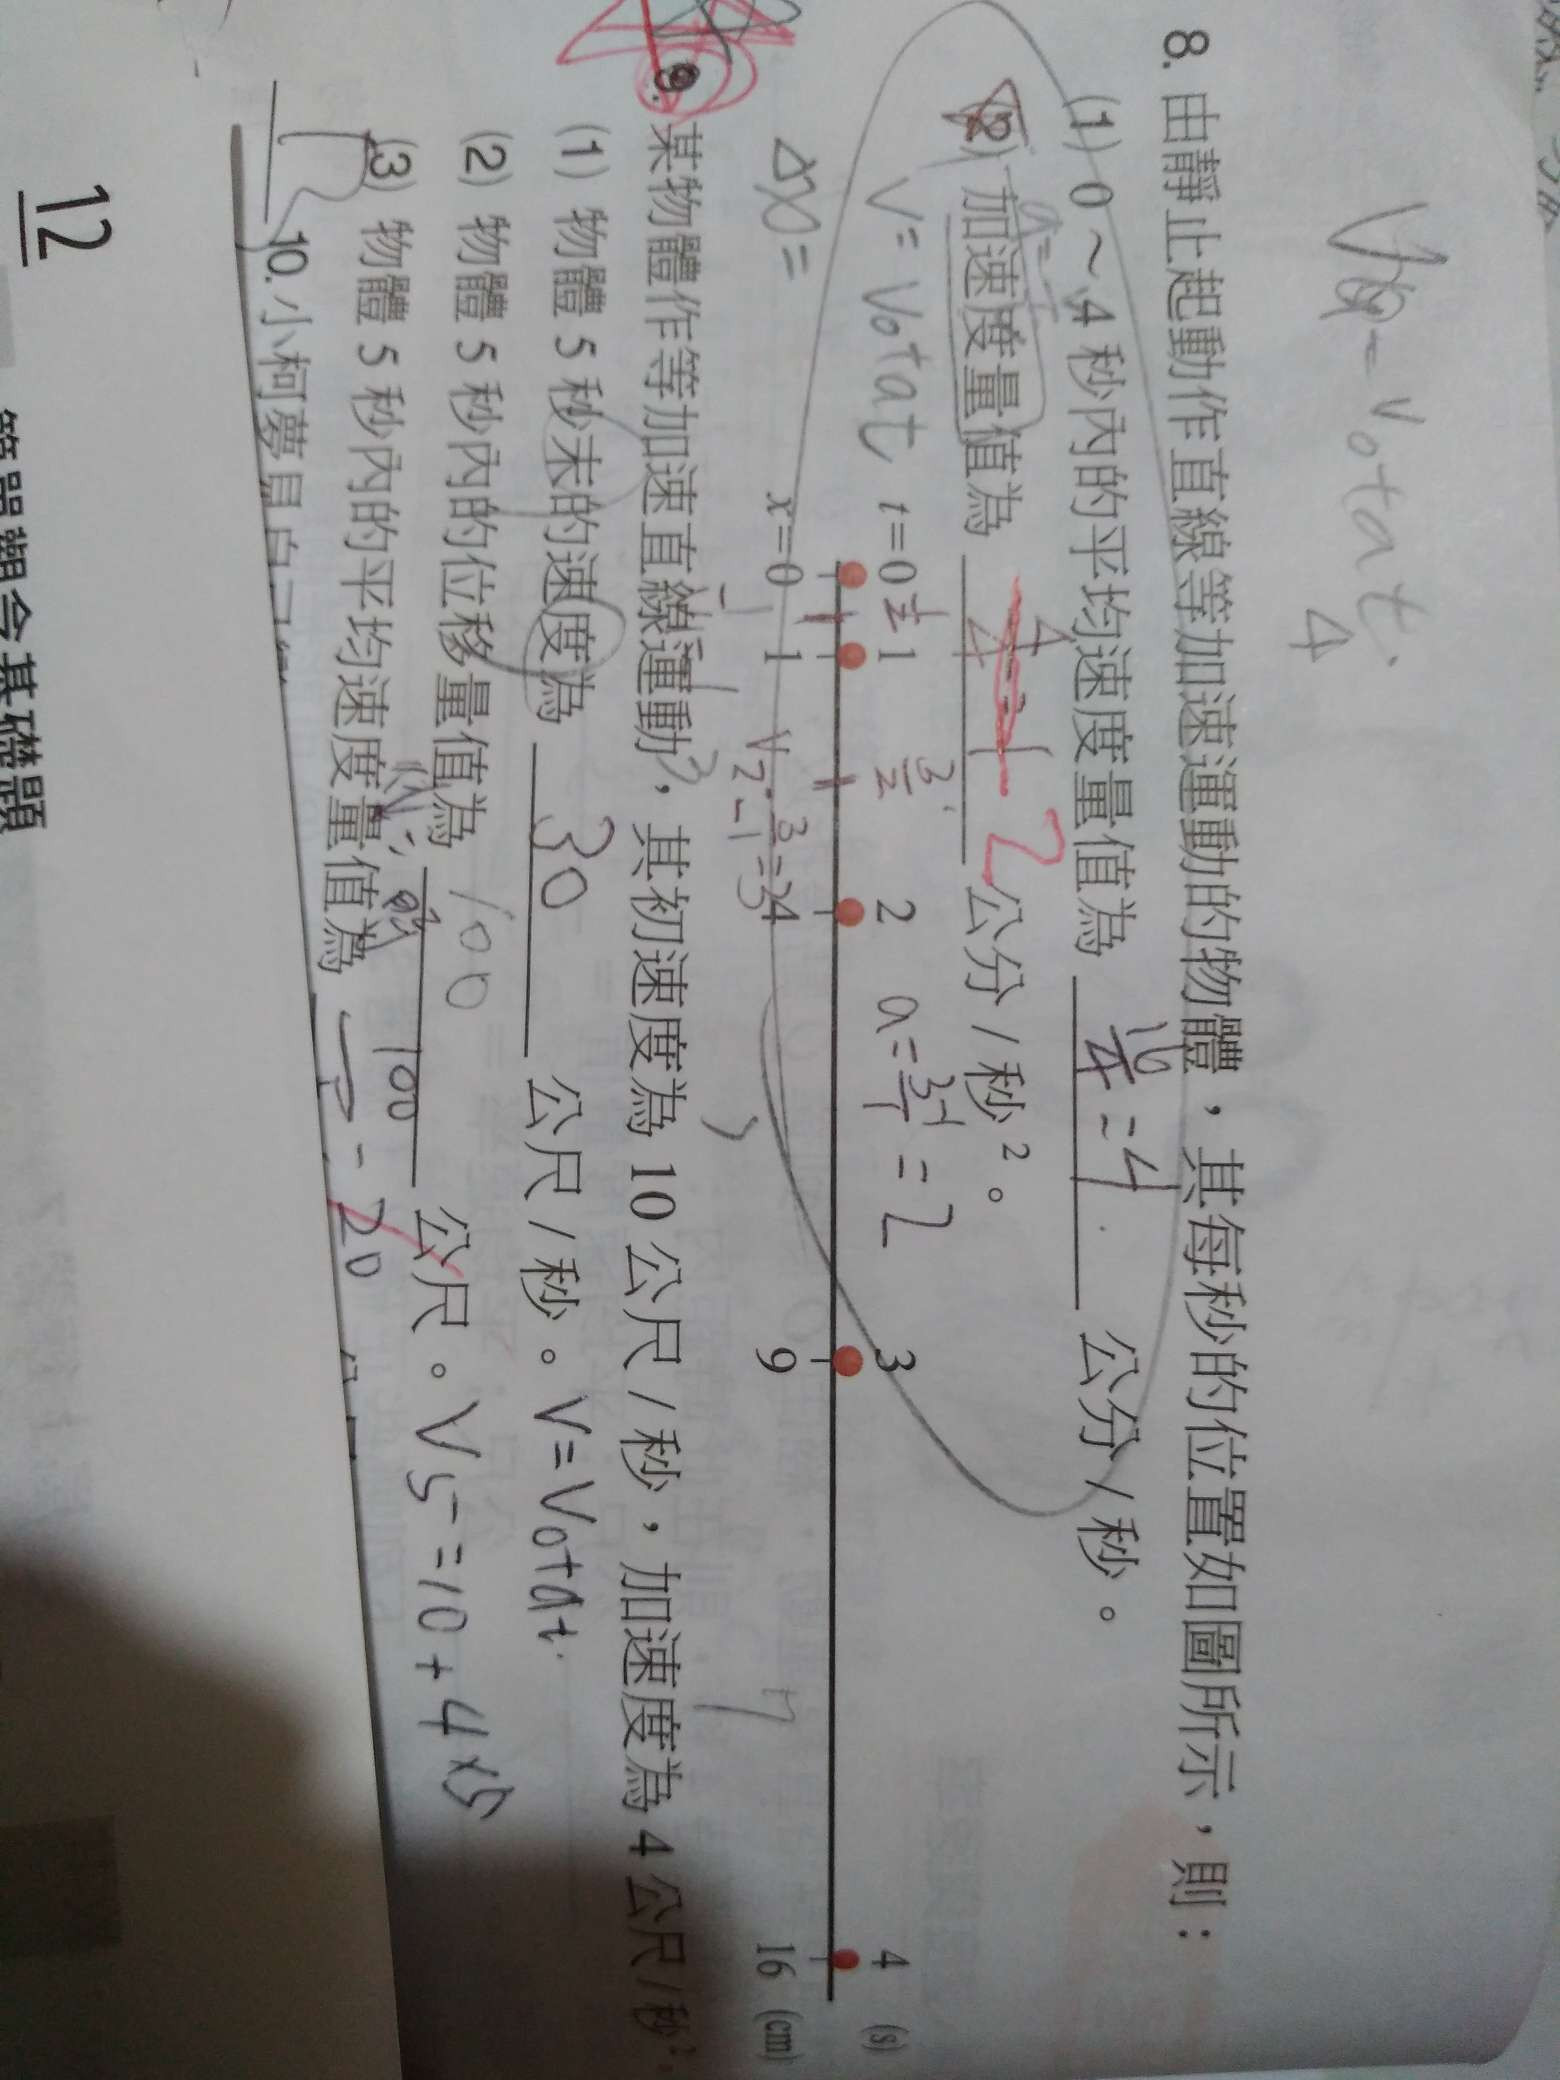 V = V₀tat.
4
8. 由靜止起動作直線等加速運動的物體，其每秒的位置如圖所示，則：
(1) 0～4 秒內的平均速度量值為 16/4 = 4 公分 / 秒。
(2) 加速度量值為 2 公分 / 秒²。
V = V₀tat t=0 1/2 1 3/2 2 a = 3-1/1 = 2 3 4 (s)
Δx = x=0 1 4 9 16 (cm)
V 2-1 = 3/1 = 3
9. 某物體作等加速直線運動，其初速度為 10 公尺 / 秒，加速度為 4 公尺 / 秒²，
(1) 物體 5 秒末的速度為 30 公尺 / 秒。V = V₀tat.
(2) 物體 5 秒內的位移量值為 100 100 公尺。V5 = 10 + 4×5
(3) 物體 5 秒內的平均速度量值為 = 20
10. 小柯夢
12